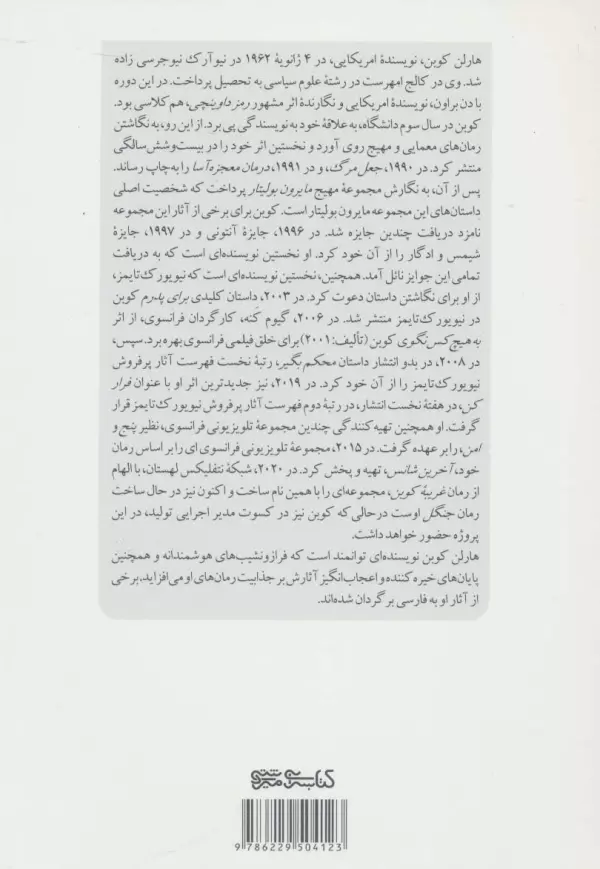 هارلن کوبن، نویسندهٔ امریکایی، در ۴ ژانویهٔ ۱۹۶۲ در نیوآرک نیوجرسی زاده
شد. وی در کالج امهرست در رشتهٔ علوم سیاسی به تحصیل پرداخت. در این دوره
با دن براون، نویسندهٔ امریکایی و نگارندهٔ اثر مشهور رمز داوینچی، هم‌کلاسی بود.
کوبن در سال سوم دانشگاه، به علاقهٔ خود به نویسندگی پی برد. از این رو، به نگاشتن
رمان‌های معمایی و مهیج روی آورد و نخستین اثر خود را در بیست‌وشش سالگی
منتشر کرد. در ۱۹۹۰، جعل مرگ، و در ۱۹۹۱، درمان معجزه‌آسا را به‌چاپ رساند.
پس از آن، به نگارش مجموعهٔ مهیج مایرون بولیتار پرداخت که شخصیت اصلی
داستان‌های این مجموعه مایرون بولیتار است. کوبن برای برخی از آثار این مجموعه
نامزد دریافت چندین جایزه شد. در ۱۹۹۶، جایزهٔ آنتونی و در ۱۹۹۷، جایزهٔ
شیمس و ادگار را از آن خود کرد. او نخستین نویسنده‌ای است که به دریافت
تمامی این جوایز نائل آمد. همچنین، نخستین نویسنده‌ای است که نیویورک‌تایمز،
از او برای نگاشتن داستان دعوت کرد. در ۲۰۰۳، داستان کلیدی برای پدرم کوبن
در نیویورک‌تایمز منتشر شد. در ۲۰۰۶، گیوم کَنه، کارگردان فرانسوی، از اثر
به هیچ‌کس نگوی کوبن (تألیف: ۲۰۰۱) برای خلق فیلمی فرانسوی بهره برد. سپس،
در ۲۰۰۸، در بدو انتشار داستان محکم بگیر، رتبهٔ نخست فهرست آثار پرفروش
نیویورک‌تایمز را از آن خود کرد. در ۲۰۱۹، نیز جدیدترین اثر او با عنوان فرار
کن، در هفتهٔ نخست انتشار، در رتبهٔ دوم فهرست آثار پرفروش نیویورک‌تایمز قرار
گرفت. او همچنین تهیه‌کنندگی چندین مجموعهٔ تلویزیونی فرانسوی، نظیر پنج و
امن، را بر عهده گرفت. در ۲۰۱۵، مجموعهٔ تلویزیونی فرانسوی‌ای را بر اساس رمان
خود، آخرین شانس، تهیه و پخش کرد. در ۲۰۲۰، شبکهٔ نتفلیکس لهستان، با الهام
از رمان غریبهٔ کوبن، مجموعه‌ای را با همین نام ساخت و اکنون نیز در حال ساخت
رمان جنگل اوست درحالی‌که کوبن نیز در کسوت مدیر اجرایی تولید، در این
پروژه حضور خواهد داشت.
هارلن کوبن نویسنده‌ای توانمند است که فرازونشیب‌های هوشمندانه و همچنین
پایان‌های خیره‌کننده و اعجاب‌انگیز آثارش بر جذابیت رمان‌های او می‌افزاید. برخی
از آثار او به فارسی برگردان شده‌اند.
9 786229 504123